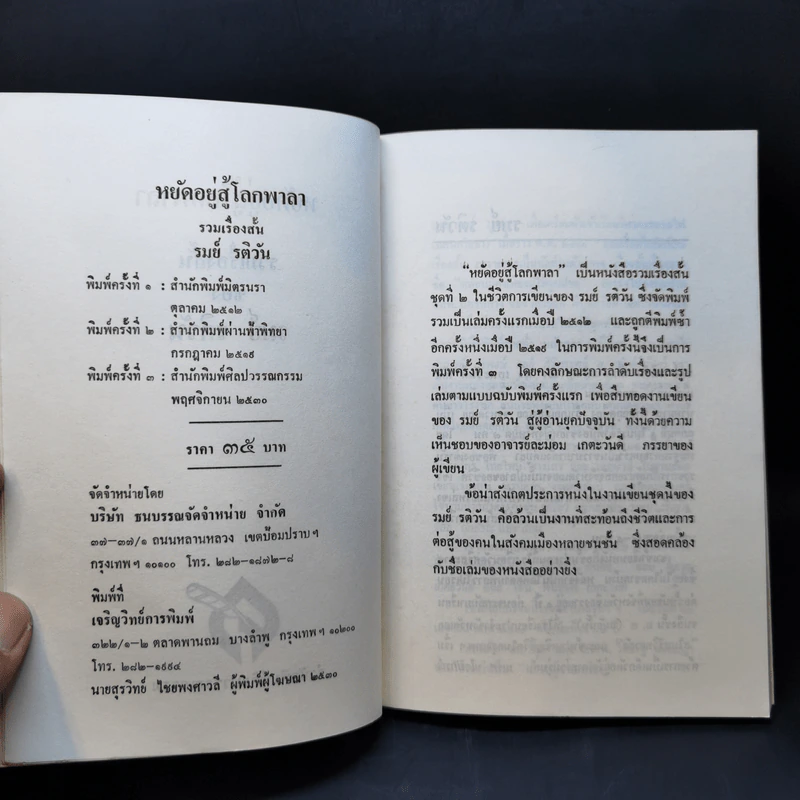 หยัดอยู่สู้โลกพาลา
รวมเรื่องสั้น
รมย์ รติวัน
พิมพ์ครั้งที่ ๑ : สำนักพิมพ์มิตรนรา
ตุลาคม ๒๕๑๒
พิมพ์ครั้งที่ ๒ : สำนักพิมพ์ผ่านฟ้าพิทยา
กรกฎาคม ๒๕๑๙
พิมพ์ครั้งที่ ๓ : สำนักพิมพ์ศิลปวรรณกรรม
พฤศจิกายน ๒๕๓๐
ราคา ๓๕ บาท
จัดจำหน่ายโดย
บริษัท ธนบรรณจัดจำหน่าย จำกัด
๓๗–๓๗/๑ ถนนหลานหลวง เขตป้อมปราบฯ
กรุงเทพฯ ๑๐๑๐๐ โทร. ๒๘๒–๑๘๗๒–๘
พิมพ์ที่
เจริญวิทย์การพิมพ์
๓๒๒/๑–๒ ตลาดพานถม บางลำพู กรุงเทพฯ ๑๐๒๐๐
โทร. ๒๘๒–๑๙๙๔
นายสุรวิทย์ ไชยพงศาวลี ผู้พิมพ์ผู้โฆษณา ๒๕๓๐
“หยัดอยู่สู้โลกพาลา” เป็นหนังสือรวมเรื่องสั้น
ชุดที่ ๒ ในชีวิตการเขียนของ รมย์ รติวัน ซึ่งจัดพิมพ์
รวมเป็นเล่มครั้งแรกเมื่อปี ๒๕๑๒ และถูกตีพิมพ์ซ้ำ
อีกครั้งหนึ่งเมื่อปี ๒๕๑๙ ในการพิมพ์ครั้งนี้จึงเป็นการ
พิมพ์ครั้งที่ ๓ โดยคงลักษณะการลำดับเรื่องและรูป
เล่มตามแบบฉบับพิมพ์ครั้งแรก เพื่อสืบทอดงานเขียน
ของ รมย์ รติวัน สู่ผู้อ่านยุคปัจจุบัน ทั้งนี้ด้วยความ
เห็นชอบของอาจารย์ละม่อม เกตะวันดี ภรรยาของ
ผู้เขียน
ข้อน่าสังเกตประการหนึ่งในงานเขียนชุดนี้ของ
รมย์ รติวัน คือล้วนเป็นงานที่สะท้อนถึงชีวิตและการ
ต่อสู้ของคนในสังคมเมืองหลายชนชั้น ซึ่งสอดคล้อง
กับชื่อเล่มของหนังสืออย่างยิ่ง